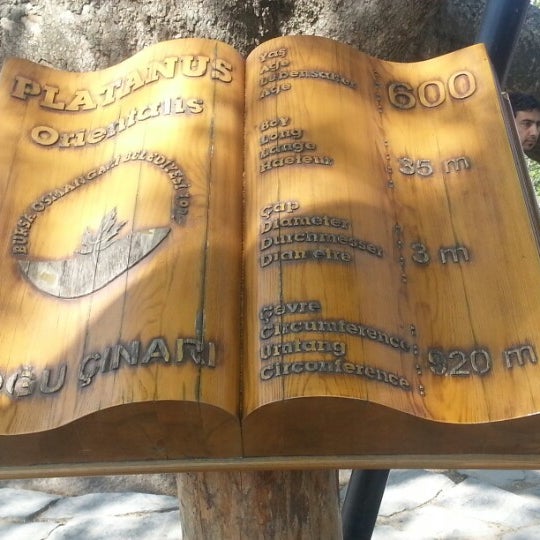 PLATANUS
Orientalis
BURSA OSMANGAZİ BELEDİYESİ
OĞU ÇINARI
Yaş
Age
Lebensalter
Age
: 600
Boy
Long
Lange
Hautent
: 35 m
Çap
Diameter
Durchmesser
Diametre
: 3 m
Çevre
Circumference
Umfang
Circonference
: 920 m